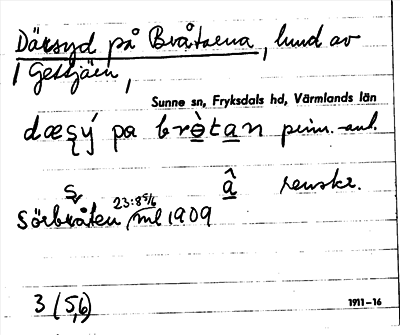 Därsyd på Bråtarna, lund av
1 Gettjärn,
Sunne sn, Fryksdals hd, Värmlands län
dæșý pa brètan prim.-anl.
â renskr.
Sörbråten, ml 1909
23:8 5/6
3 (5,6)
1911–16